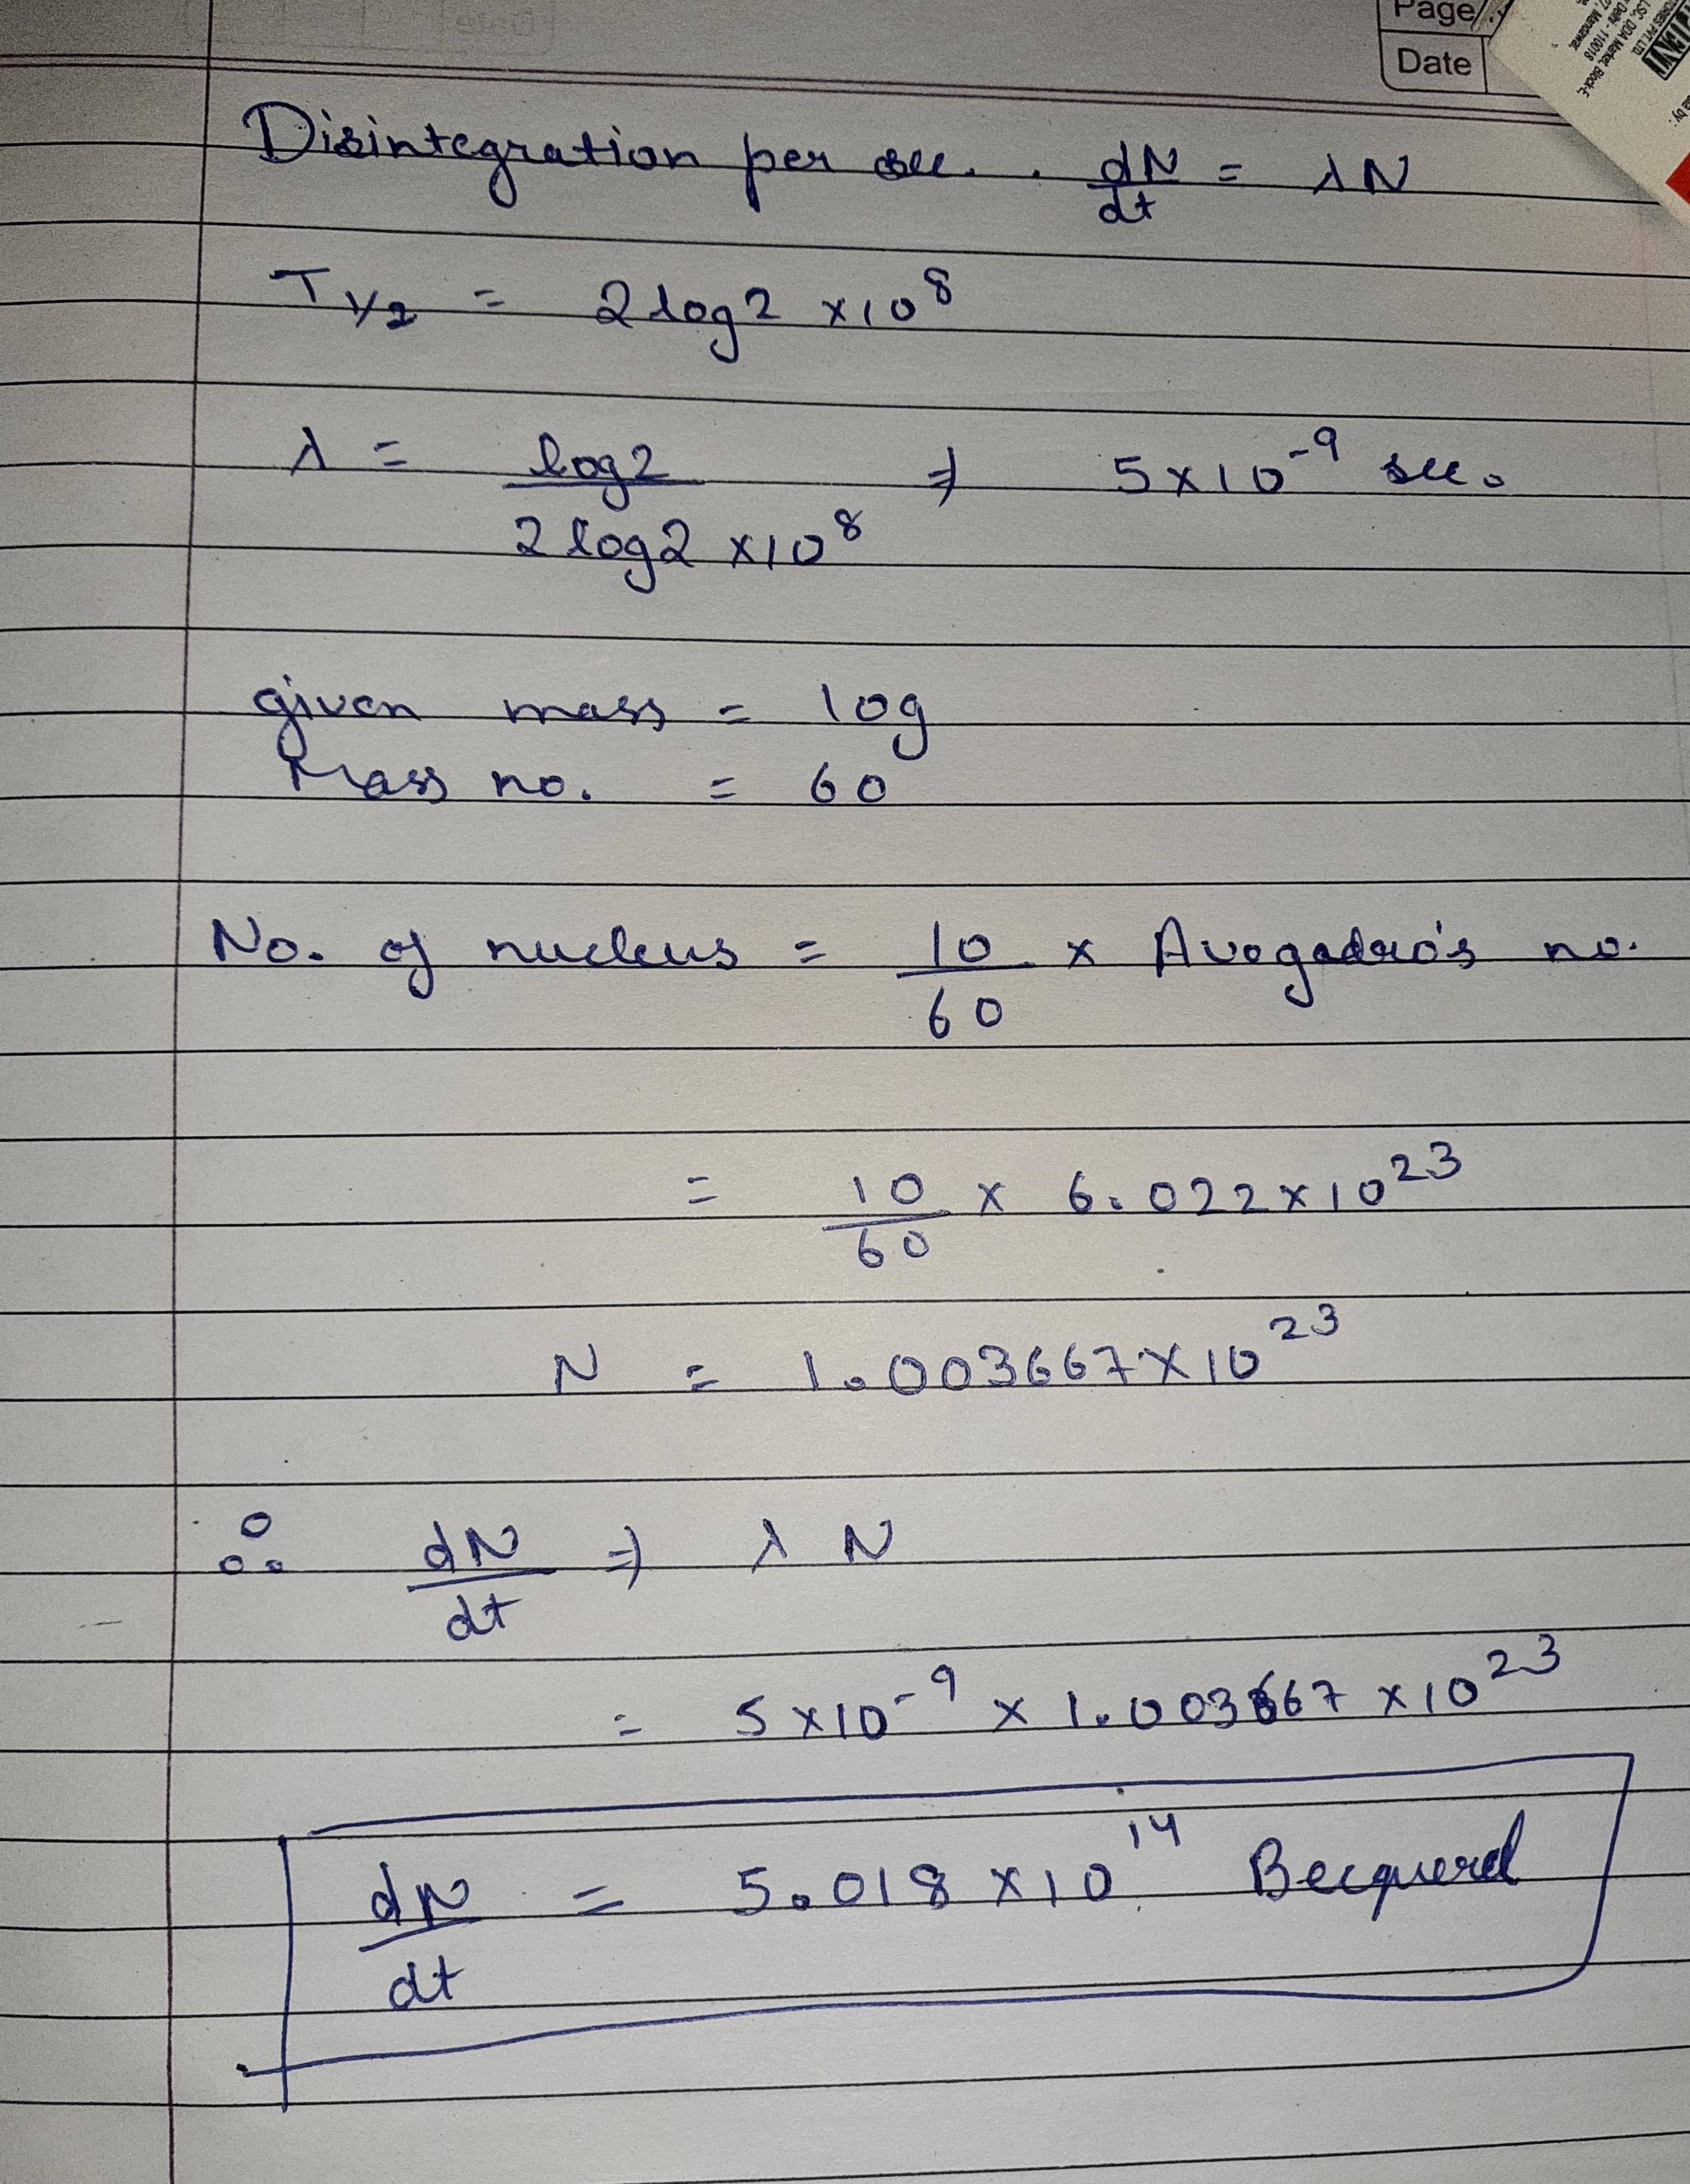 Page
Date
Disintegration per sec. . dN/dt = λN
T1/2 = 2 log2 ×10⁸
λ = log2 / 2 log2 ×10⁸ ⇒ 5×10⁻⁹ sec.
given mass = 10g
Mass no. = 60
No. of nucleus = 10/60 × Avogadro's no.
= 10/60 × 6.022×10²³
N = 1.003667×10²³
∴ dN/dt ⇒ λ N
= 5×10⁻⁹ × 1.003667 ×10²³
dN/dt = 5.018 ×10¹⁴ Becquerel